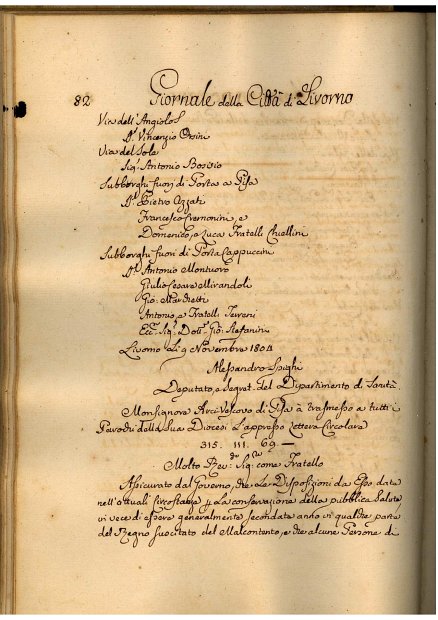 82 Giornale della Città di Livorno
Via dell'Angiolo
Sr. Vincenzio Orsini
Via del Sole
Sig. Antonio Bosisio
Subborghi fuori di Porta a Pisa
Sr. Pietro
Francesco Cremonini, e
Domenico, e Luca Fratelli Chiellini
Subborghi fuori di Porta Cappuccini
Sr. Antonio Montuoro
Giulio Cesare Mirandoli
Gio. Mardietti
Antonio, e Fratelli Terreni
Ecc. Sig. Dott. Gio. Stefanini
Livorno Li 9 Novembre 1804
Alessandro
Deputato, e Segret. del Dipartimento di Sanità
Monsignore Arcivescovo di Pisa à trasmesso a tutti i
Parochi della Sua Diocesi L'appresso Lettera Circolare
315. III. 69 —
Molto Revdo. Sigre. come Fratello
Assicurato dal Governo, che Le Disposizioni da Esso date
nell'attuali circostanze p La conservazione della pubblica Salute
in vece di essere generalmente secondate anno in qualche parte
del Regno suscitato del Malcontento, e che alcune Persone di